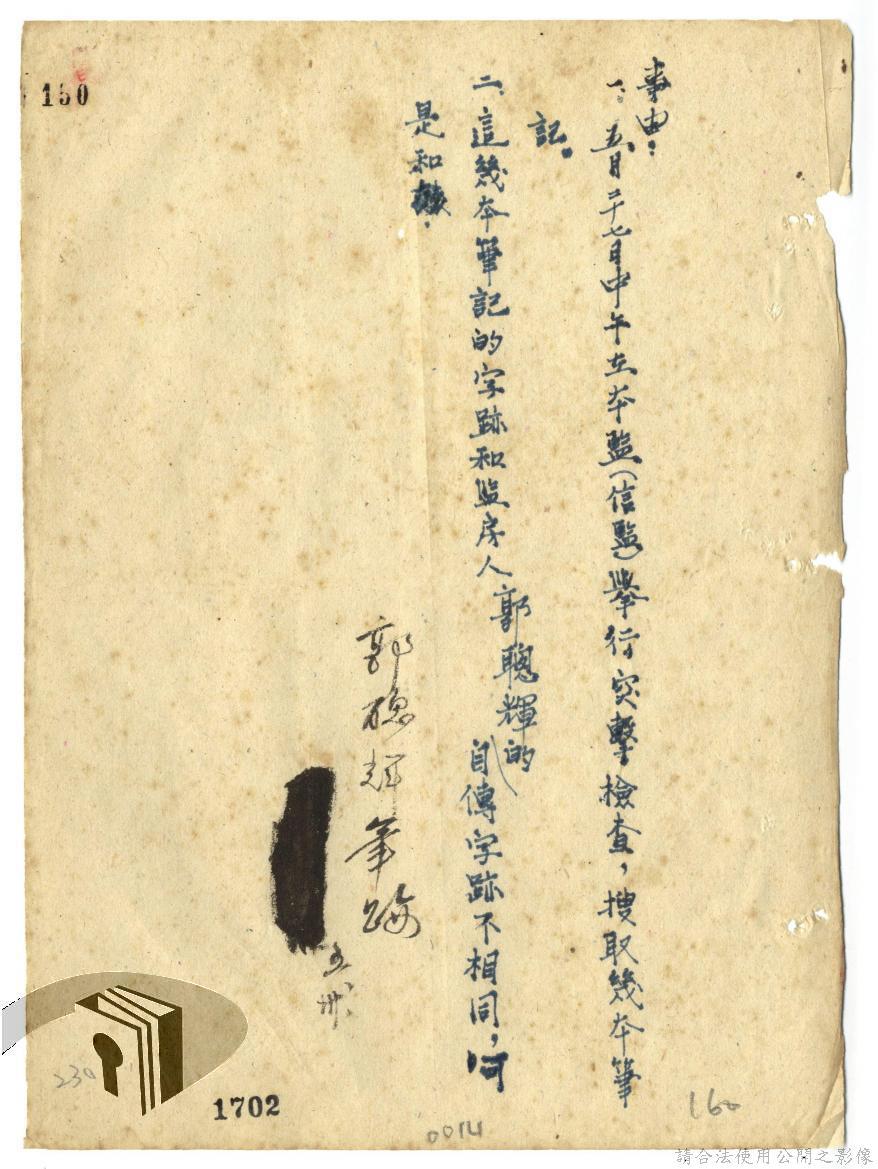 事由：
一、五月二十七日中午在本監（信監）舉行突擊檢查，搜取幾本筆
記。
二、這幾本筆記的字跡和监房人郭聰輝的自傳字跡不相同，何
是和
郭聰輝筆跡
150
230
1702
0014
160
請合法使用公開之影像